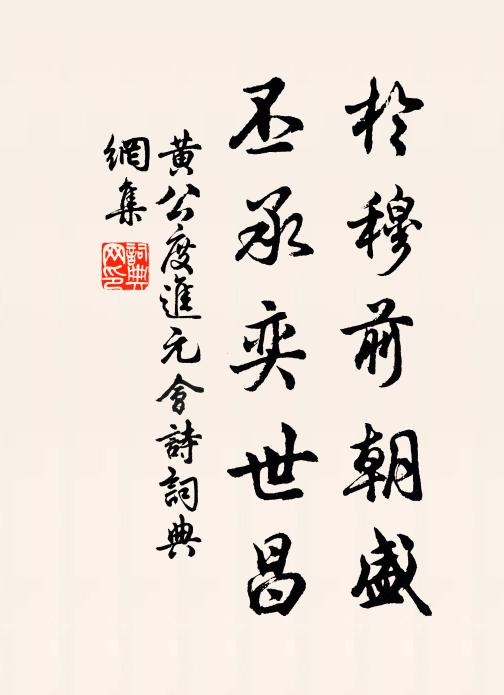 於穆前朝盛
丕承奕世昌
黄公度進元會詩詞典
網集
詞典網印